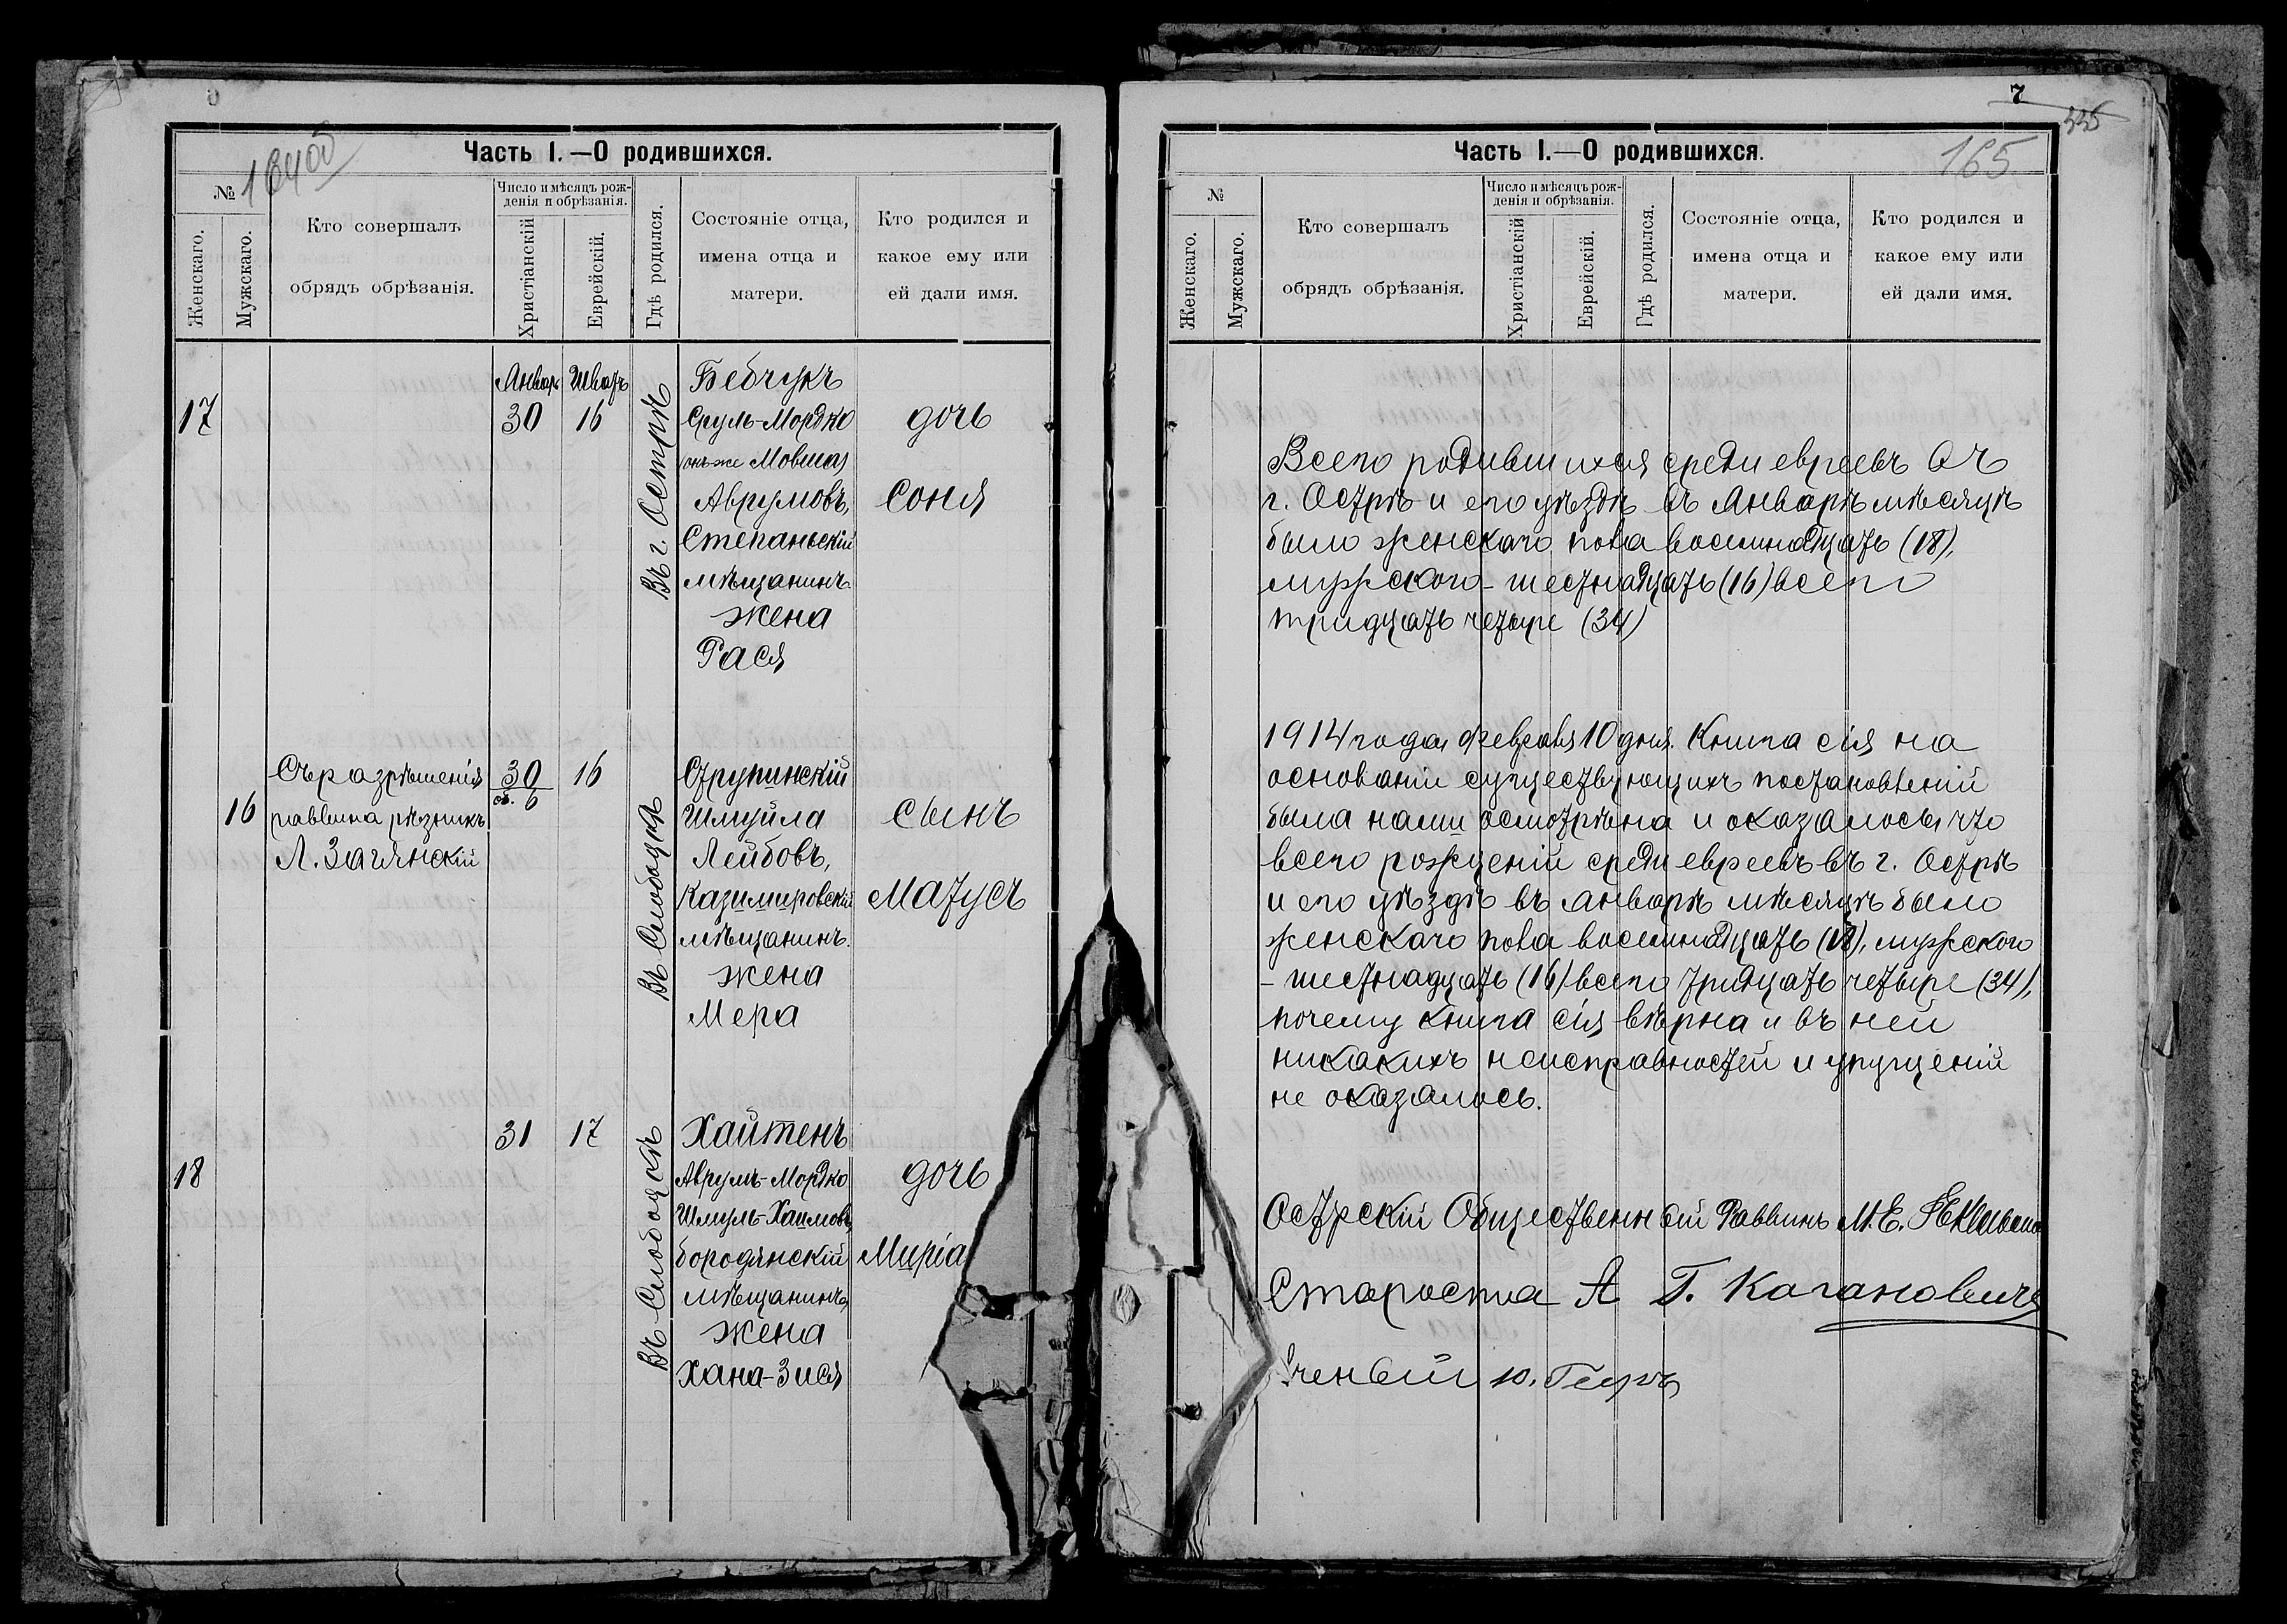 164 об
Часть I.—О родившихся.
№
Женскаго.
Мужскаго.
Кто совершалъ
обрядъ обрѣзанія.
Число и мѣсяцъ рож-
денія и обрѣзанія.
Христіанскій
Еврейскій.
Гдѣ родился.
Состояніе отца,
имена отца и
матери.
Кто родился и
какое ему или
ей дали имя.
17
Январь
30
Шватъ
16
Въ г. Острѣ
Бебчукъ
Сруль-Мордко
(онъ же Мовша)
Аврумовъ,
Степаньскій
мѣщанинъ.
жена
Рася
дочь
Соня
16
Съ разрѣшенія
раввина рѣзникъ
Л. Загянскій
30
об. 6
16
Въ Слободкѣ
Струпинскій
Шмуйла
Лейбовъ,
Казимировскій
мѣщанинъ.
жена
Мера
сынъ
Матусъ
18
31
17
Въ Слободкѣ
Хайтенъ
Аврумъ-Мордко
Шмуль-Хаимовъ,
бородянскій
мѣщанинъ,
жена
Хана-Зися
дочь
Миріа
7
335
165
Часть I.—О родившихся.
№
Женскаго.
Мужскаго.
Кто совершалъ
обрядъ обрѣзанія.
Число и мѣсяцъ рож-
денія и обрѣзанія.
Христіанскій
Еврейскій.
Гдѣ родился.
Состояніе отца,
имена отца и
матери.
Кто родился и
какое ему или
ей дали имя.
Всего родившихся среди евреевъ въ
г. Острѣ и его уѣздѣ въ Январѣ мѣсяцѣ
было женскаго пола восемнадцать (18),
мужского - шестнадцать (16) всего
тридцать четыре (34)
1914 года, февраля 10 дня. Книга сія на
основаніи существующихъ постановленій
была нами осмотрѣна и оказалось, что
всего рожденій среди евреевъ въ г. Острѣ
и его уѣздѣ въ Январѣ мѣсяцѣ было
женскаго пола восемнадцать (18), мужского
- шестнадцать (16) всего тридцать четыре (34),
почему книга сія вѣрна и въ ней
никакихъ неисправностей и упущеній
не оказалось.
Острскій Общественный Раввинъ М. Е.
Староста А Г. Кагановичъ
Ученый Ю.